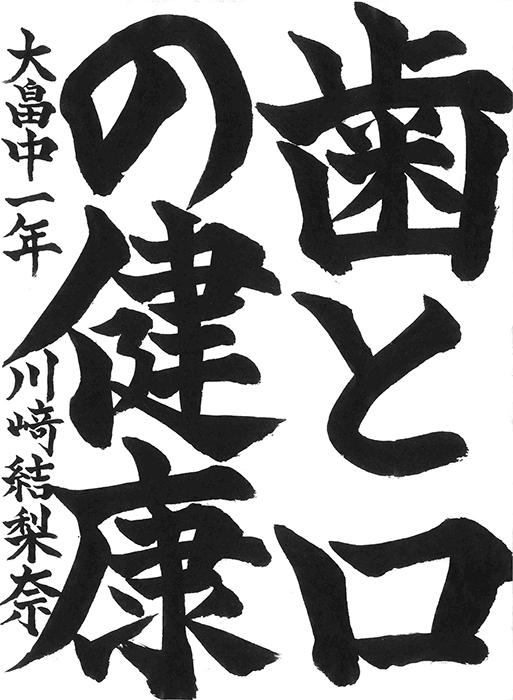 歯と口
の健康
大畠中一年 川﨑結梨奈